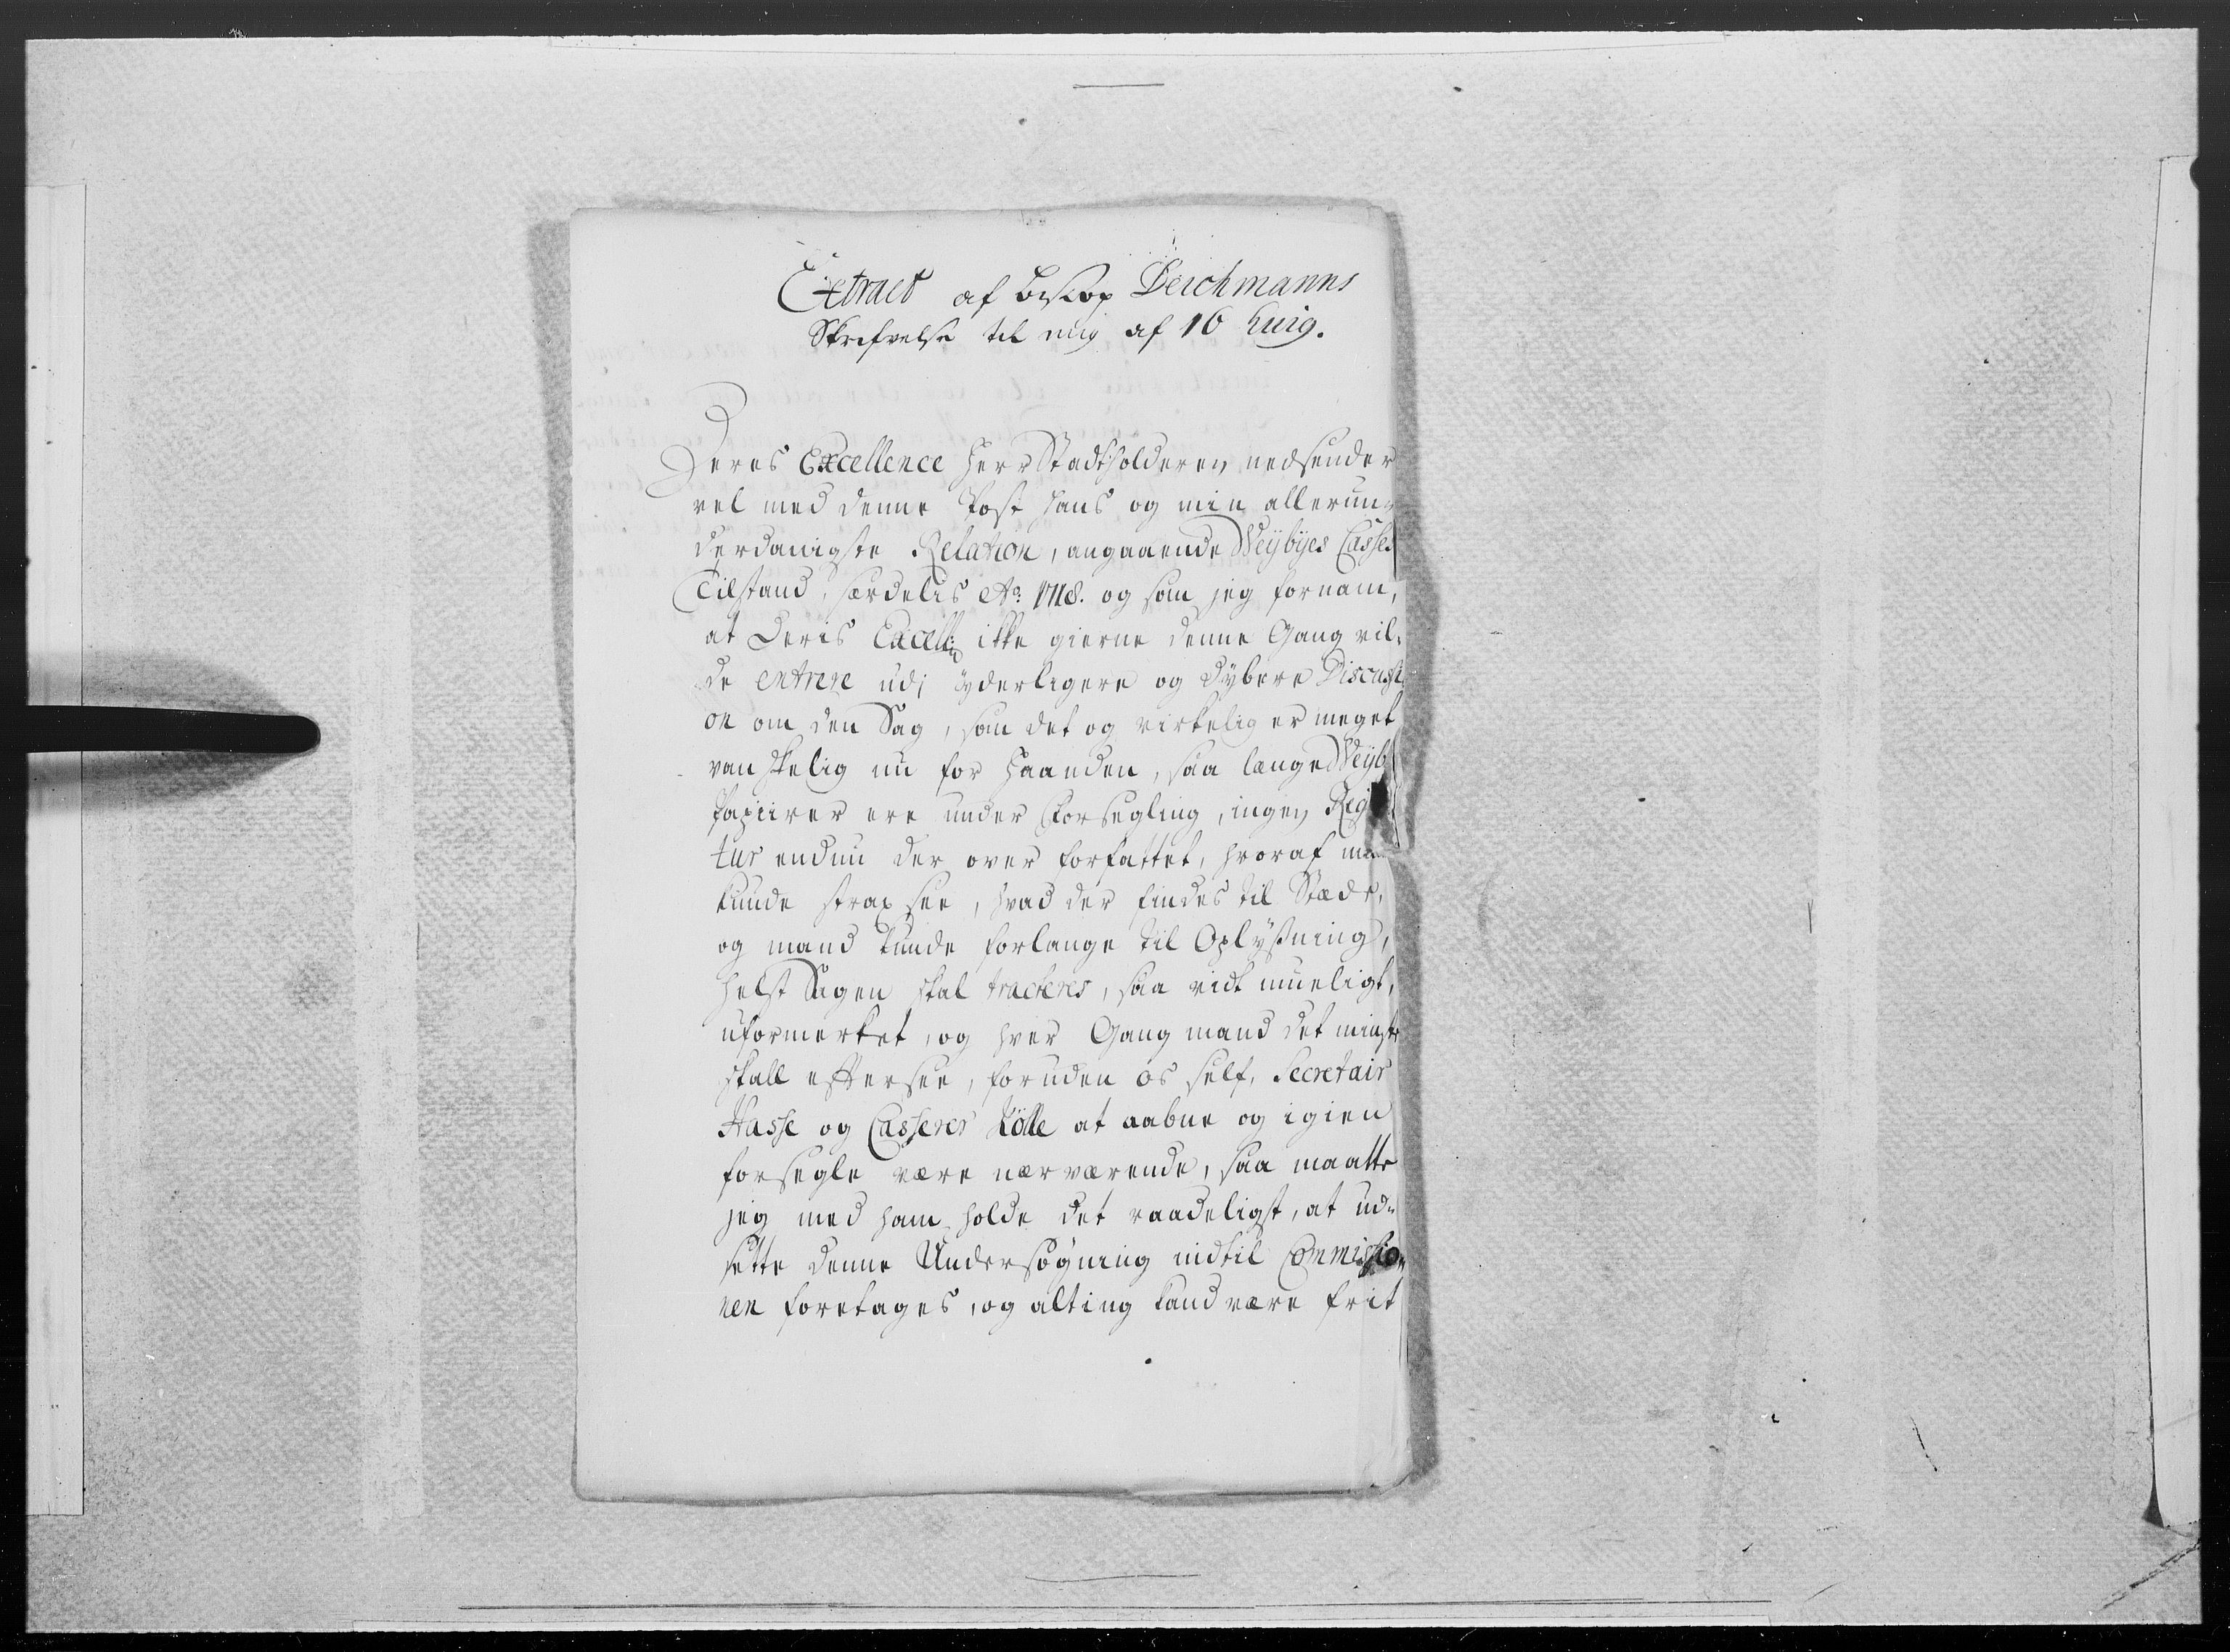 Extract af biskop Deichmanns
Skrifvelse til mig af 16 huig.
Deres Excellence Herr Stadtholderen nedsender
vel med denne Post hans og min allerun-
derdanigste Relation, angaaende Weijbÿes Casses
Tilstand, særdelis Ao. 1718. og som jeg fornam,
at Deris Excell: ikke gierne denne Gang vil-
de entrere udj ÿderligere og dÿbere Discussi-
on om den Sag, som det og virkelig er meget
vanskelig nu for Haanden, saa længe Weijb
Papiirer ere under Forsegling, ingen Reg
tur endnu der over forfattet, hvoraf ma
kunde strax see, hvad der findes til Stæde,
og mand kunde forlange til Oplÿsning,
helst Sagen skal tracteres, saa vidt mueligt,
uformerket, og hver Gang mand det mingste
skall eftersee, foruden os self, Secretair
Hasse og Casserer Kölle at aabne og igien
forsegle være nærværende, saa maatte
jeg med ham holde det raadeligst, at ud-
sette denne Undersøgning indtil Commissio-
nen foretages, og alting kand være frit